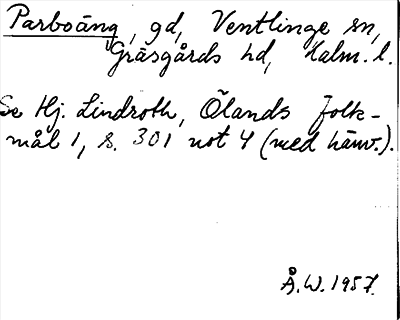 Parboäng, gd, Ventlinge sn,
Gräsgårds hd, Kalm. l.
Se Hj. Lindroth, Ölands folk-
mål 1, s. 301 not 4 (med hänv.).
Å.W. 1957.